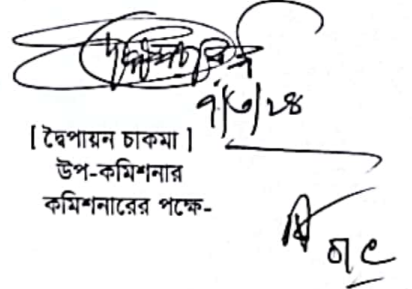 ৭/৩/২৪
[ দ্বৈপায়ন চাকমা ]
উপ-কমিশনার
কমিশনারের পক্ষে-